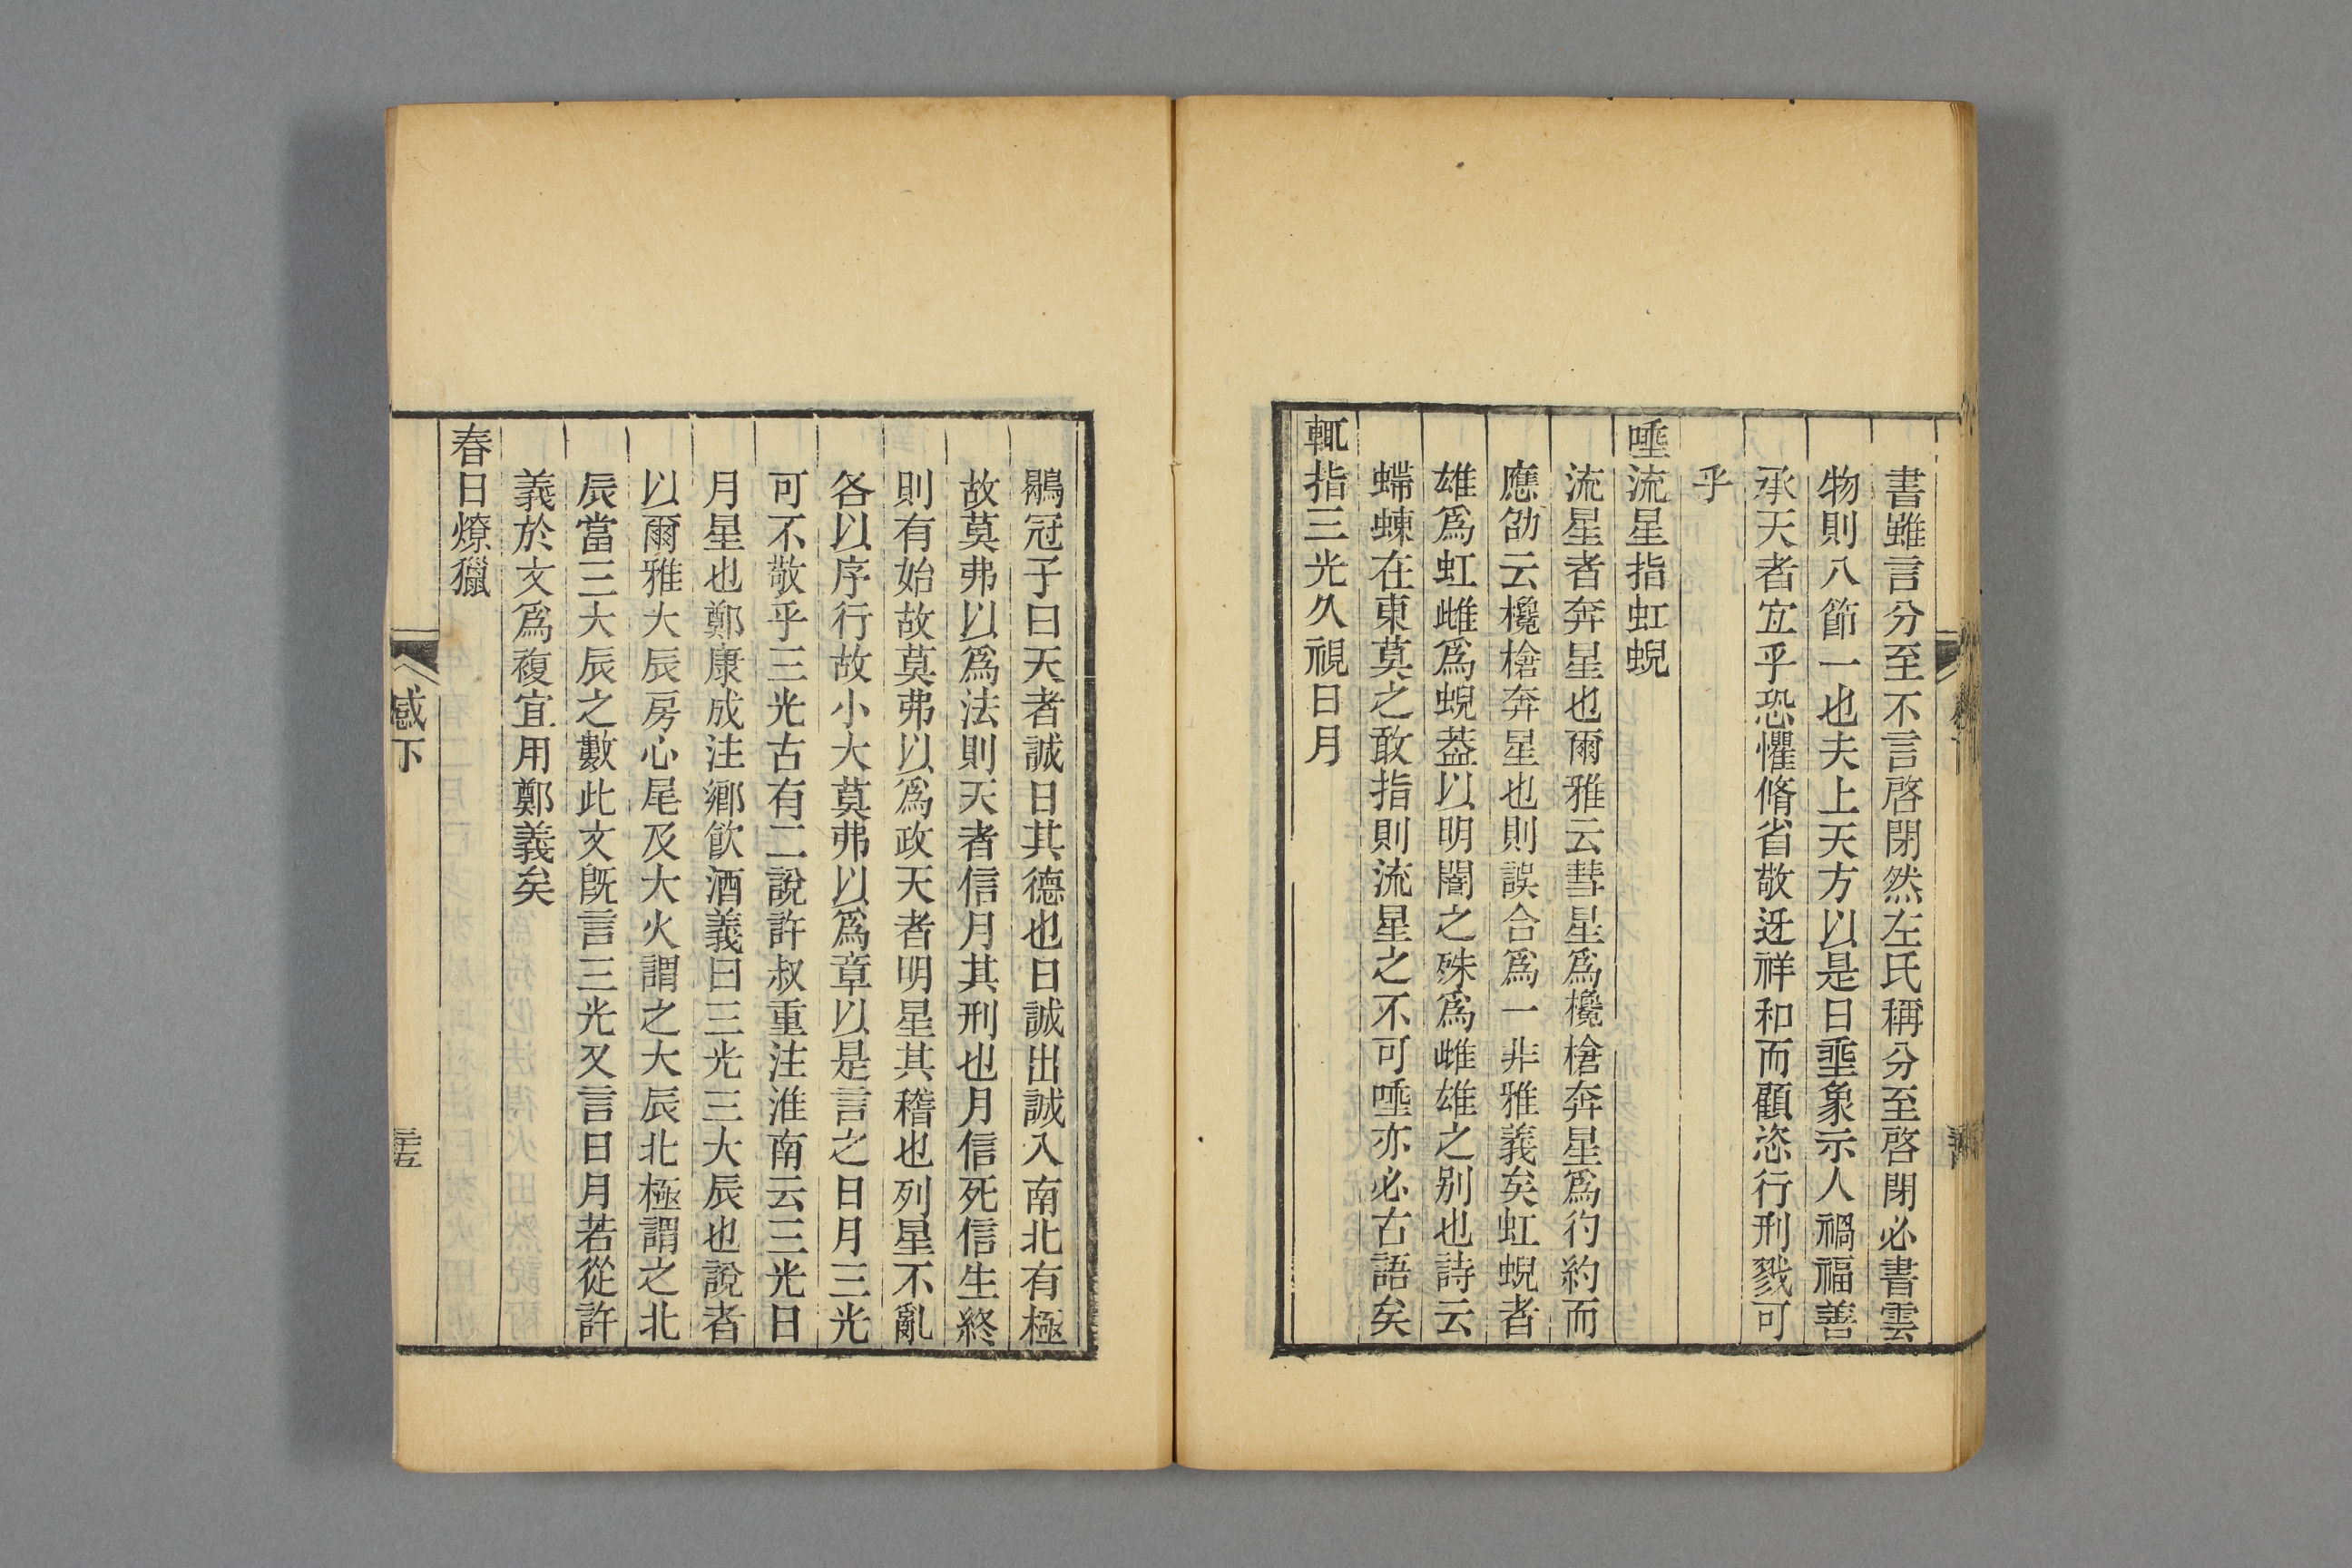 書雖言分至不言啓閉然左氏稱分至啓閉必書雲
物則八節一也夫上天方以是日埀象示人禍福善
承天者宜乎恐懼脩省敬迓祥和而顧恣行刑戮可
乎
唾流星指虹蜺
流星者奔星也爾雅云彗星爲欃槍奔星爲彴約而
應劭云欃槍奔星也則誤合爲一非雅義矣虹蜺者
雄爲虹雌爲蜺葢以明闇之殊爲雌雄之别也詩云
蝃蝀在東莫之敢指則流星之不可唾亦必古語矣
輒指三光久視日月
鶡冠子曰天者誠日其德也日誠出誠入南北有極
故莫弗以爲法則天者信月其刑也月信死信生終
則有始故莫弗以爲政天者明星其稽也列星不亂
各以序行故小大莫弗以爲章以是言之日月三光
可不敬乎三光古有二說許叔重注淮南云三光日
月星也鄭康成注鄉飮酒義曰三光三大辰也說者
以爾雅大辰房心尾及大火謂之大辰北極謂之北
辰當三大辰之數此文旣言三光又言日月若從許
義於文爲複宜用鄭義矣
春日燎獵
感下
三十五